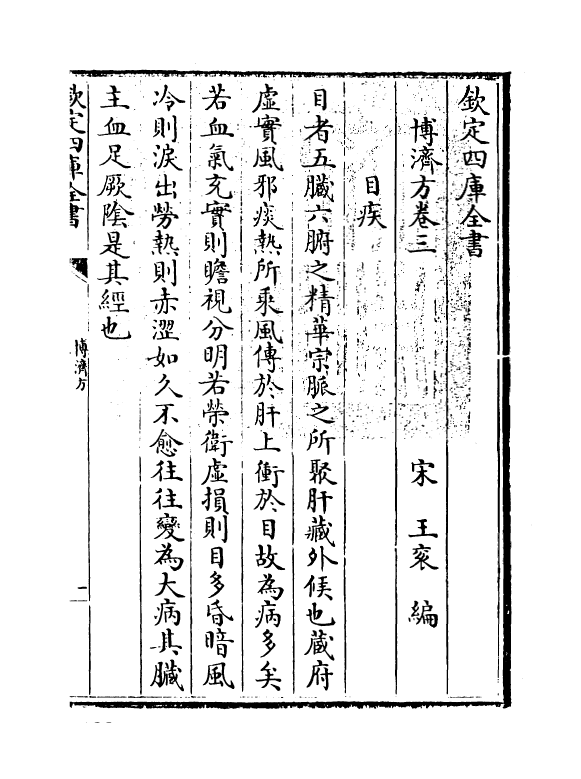 欽定四庫全書
博濟方卷三
宋 王袞 編
目疾
目者五臟六腑之精華宗脈之所聚肝藏外候也藏府
虛實風邪痰熱所乘風傳於肝上衝於目故為病多矣
若血氣充實則瞻視分明若榮衛虛損則目多昏暗風
冷則淚出勞熱則赤澀如久不愈往往變為大病其臟
主血足厥陰是其經也
欽定四庫全書
博濟方
一